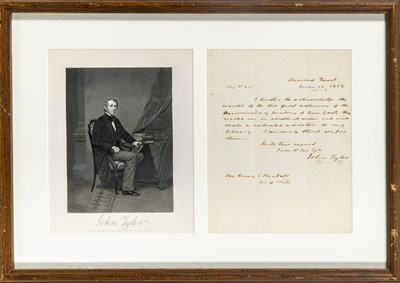 John Tyler
Sherwood Forest
June 12, 185
My D Sir
I hasten to acknowledge the
receipt of the two first volumes of the
Documentary History of New York. They
reached me in excellent order and will
make a valuable addition to my
library. I sincerely thank you for
them.
With true regard
I am Dr Sir Yrs
John Tyler
Hon Henry S. Randall
Sec of State